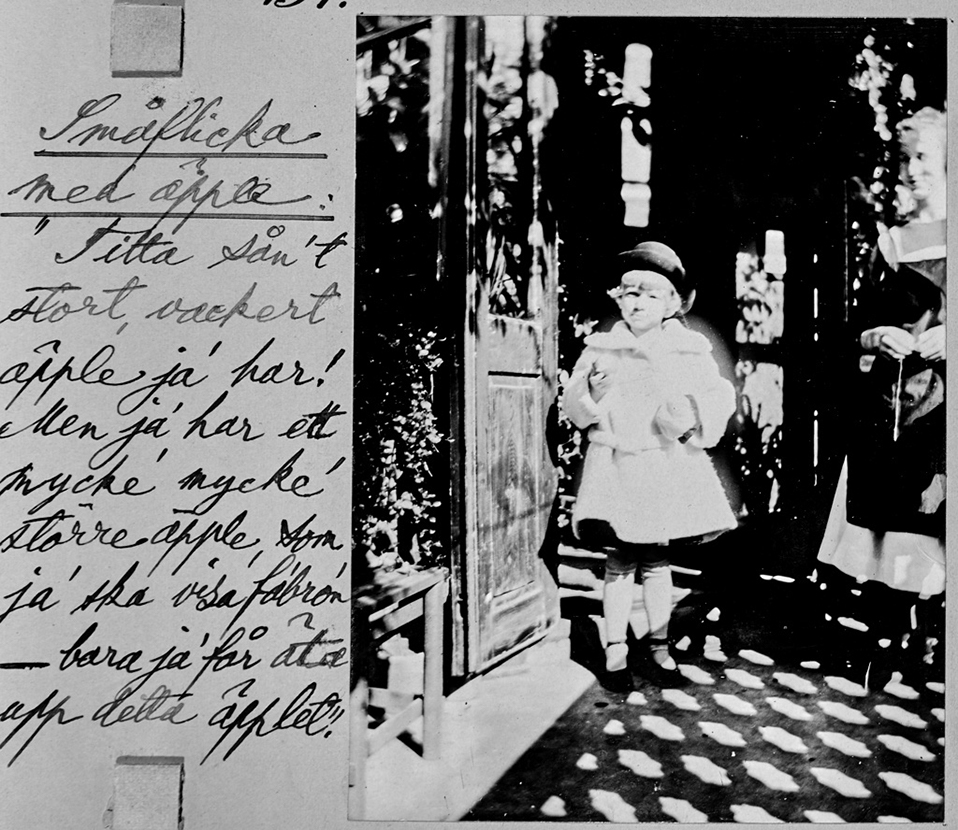 Småflicka
med äpple.
"Titta sån't
stort, vackert
äpple já har!
Men já har ett
mycké mycké
större äpple, som
já ska visa fábrón
— bara já får äta
upp detta äpplet"!